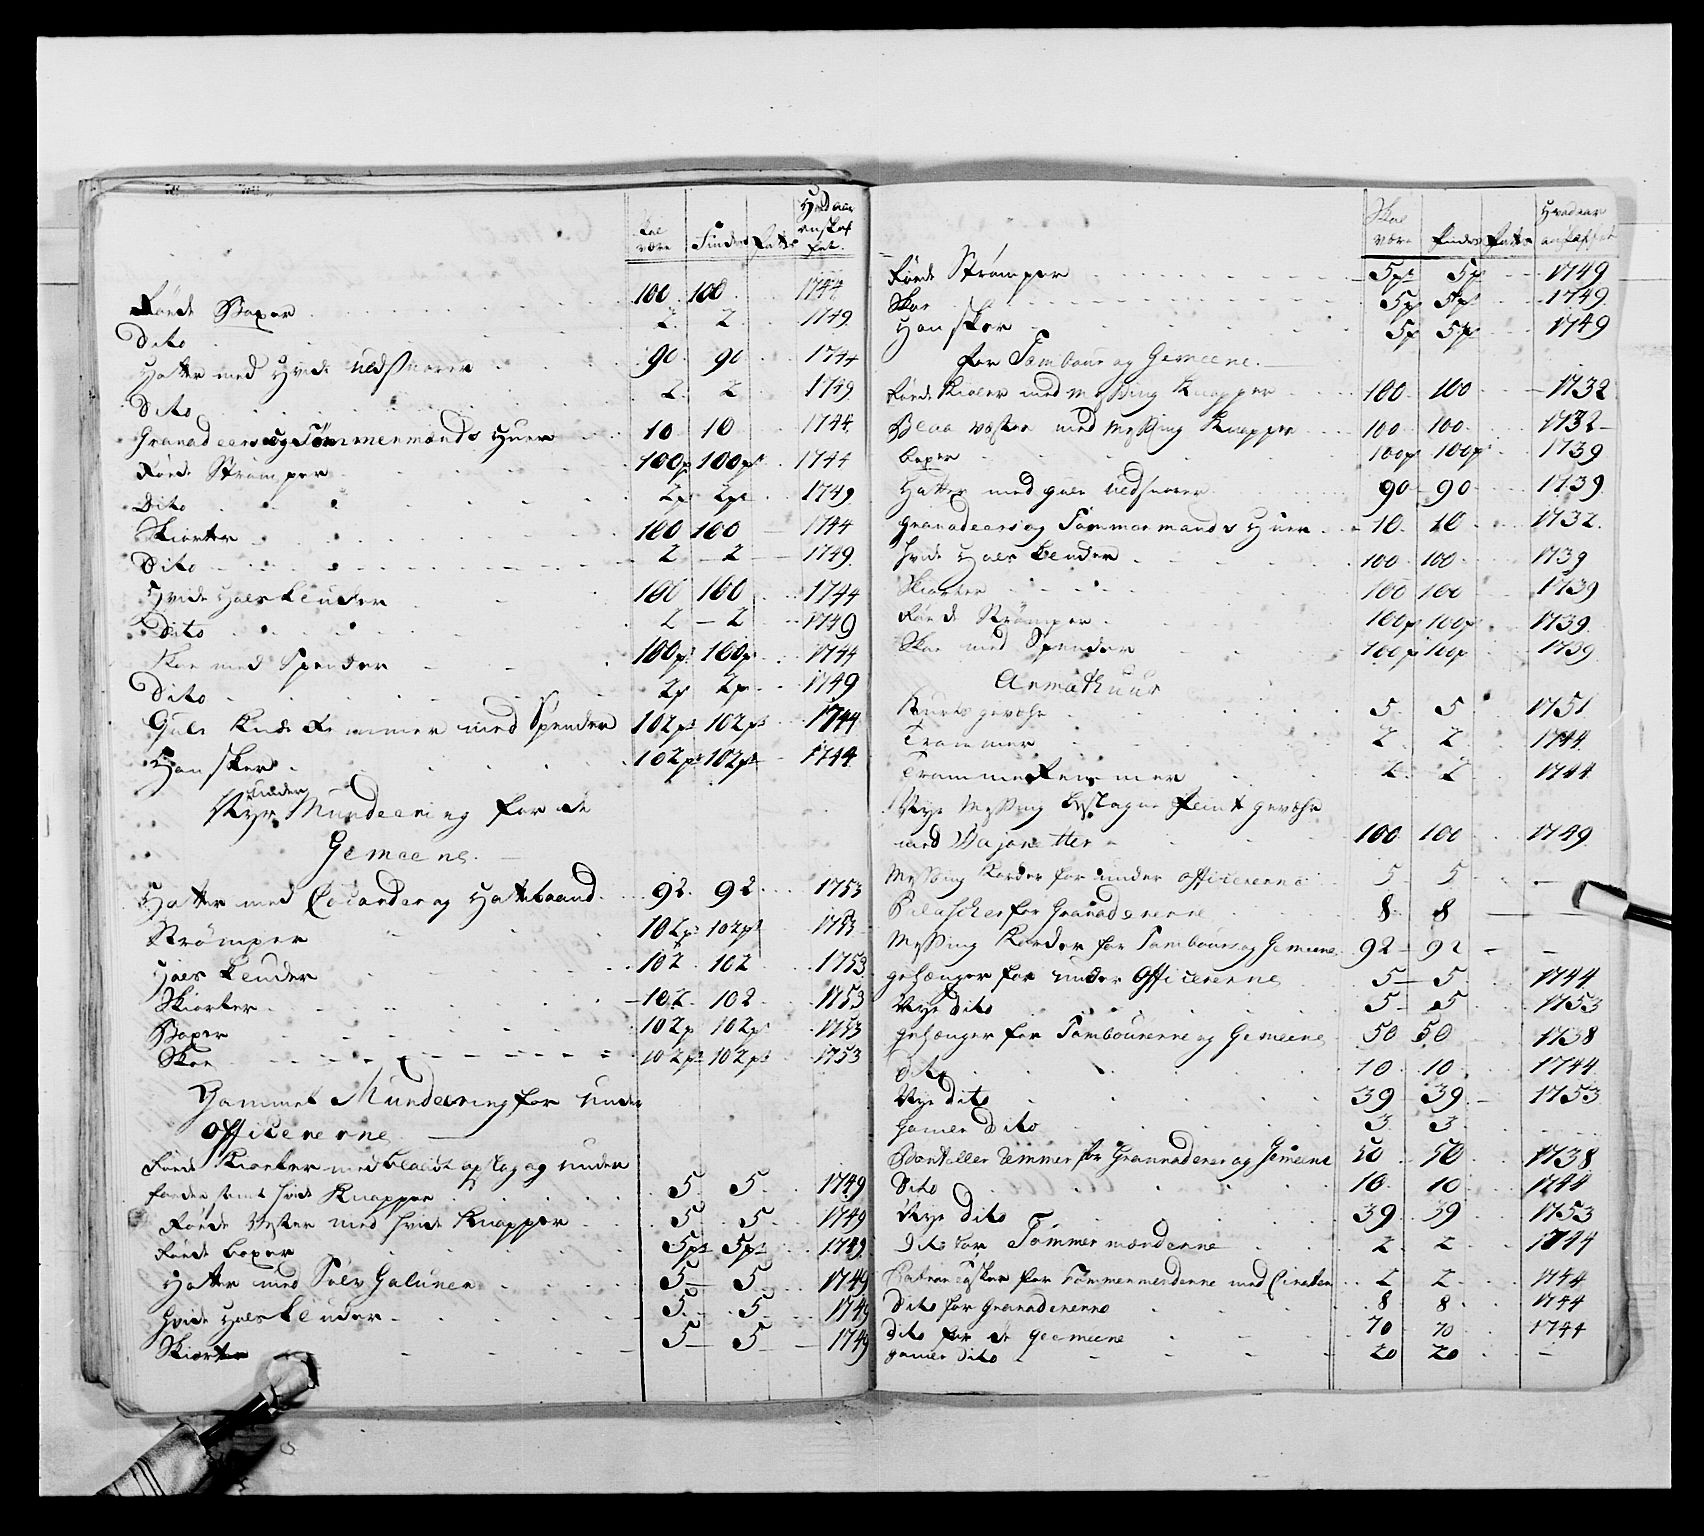 Skal være Findes Fattes Hvad aar anskaffet.
Røde Boxer 100 100 1744
Dito 2 2 1749
Hatter med Hvide uldsnorer 90 90 1744
Dito 2 2 1749
Granadeers og Tømmermands Huer 10 10 1744
Røde Strømper 100p 100p 1744
Dito 2p 2p 1749
Skiorter 100 100 1744
Dito 2 2 1749
Hvide Halskluder 100 100 1744
Dito 2 2 1749
Skoe med Spender 100p 100p 1744
Dito 2p 2p 1749
Gule Knæ Remmer med Spender 102p 102p 1744
Hansker 102p 102p 1744
Nye Mundeering for de
Gemeene.
Hatter med Cocarder og Hattebaand 92 92 1753
Strømper 102p 102p 1753
Halskluder 102 102 1753
Skiorter 102 102 1753
Boxer 102p 102p 1753
Skoe 102p 102p 1753
Gammel Mundeering for under
Officererne
Røde Kiorler med blaadt opslag og under
foeder samt hvide Knapper 5 5 1749
Røde Vester med hvide Knapper 5 5 1749
Røde boxer 5p 5p 1749
Hatter med Sølv Galuner 5 5 1749
Hvide Halskluder 5 5 1749
Skiorter 5 5 1749
Skal være Findes Fattes Hvad aar anskaffet
Røde Strømper 5p 5p 1749
Skoe 5p 5p 1749
Hansker 5p 5p 1749
for Tambour og Gemeene.
Røde Kioler med Messing Knapper 100 100 1732
Blaa vester med Messing Knapper 100 100 1732
boxer 100p 100p 1739
Hatter med gule uldsnorer 90 90 1739
Granadeers og Tømmermands Huer 10 10 1732
Hvide Halskluder 100 100 1739
Skiorter 100 100 1739
Røde Strømper 100p 100p 1739
Skoe med Spender 100p 100p 1739
Armathuur
Kurtz gevæhr 5 5 1751
Trommer 2 2 1744
Tromme Remmer 2 2 1744
Nye Messing beslagne Flint gevæhr
med Bajonetter 100 100 1749
Messing Korder for under officererne 5 5
Palascher for Granadererne 8 8
Messing Korder for Tambours og Gemeene 92 92
gehænger for under Officererne 5 5 1744
Nye dito 5 5 1753
gehænger for Tambourerne og Gemeene 50 50 1738
dito 10 10 1744
Nye dito 39 39 1753
gamle dito 3 3
Bantellier Remmer for Grannaderer og Gemeene 50 50 1738
Dito 10 10 1744
Nye dito 39 39 1753
Dito for Tømmermænderne 2 2 1744
Patrontasker for Tømmermenderne med 2 2 1744
Dito for Granadererne 8 8 1744
dito for de Gemeene 70 70 1744
gamle dito 20 20